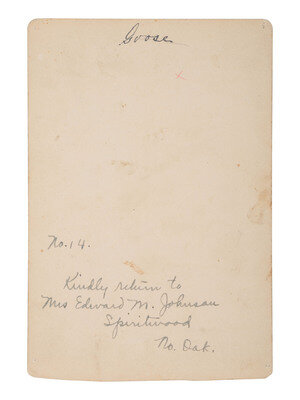 Goose
No. 14.
Kindly return to
Mrs Edward M. Johnson
Spiritwood
No. Dak.